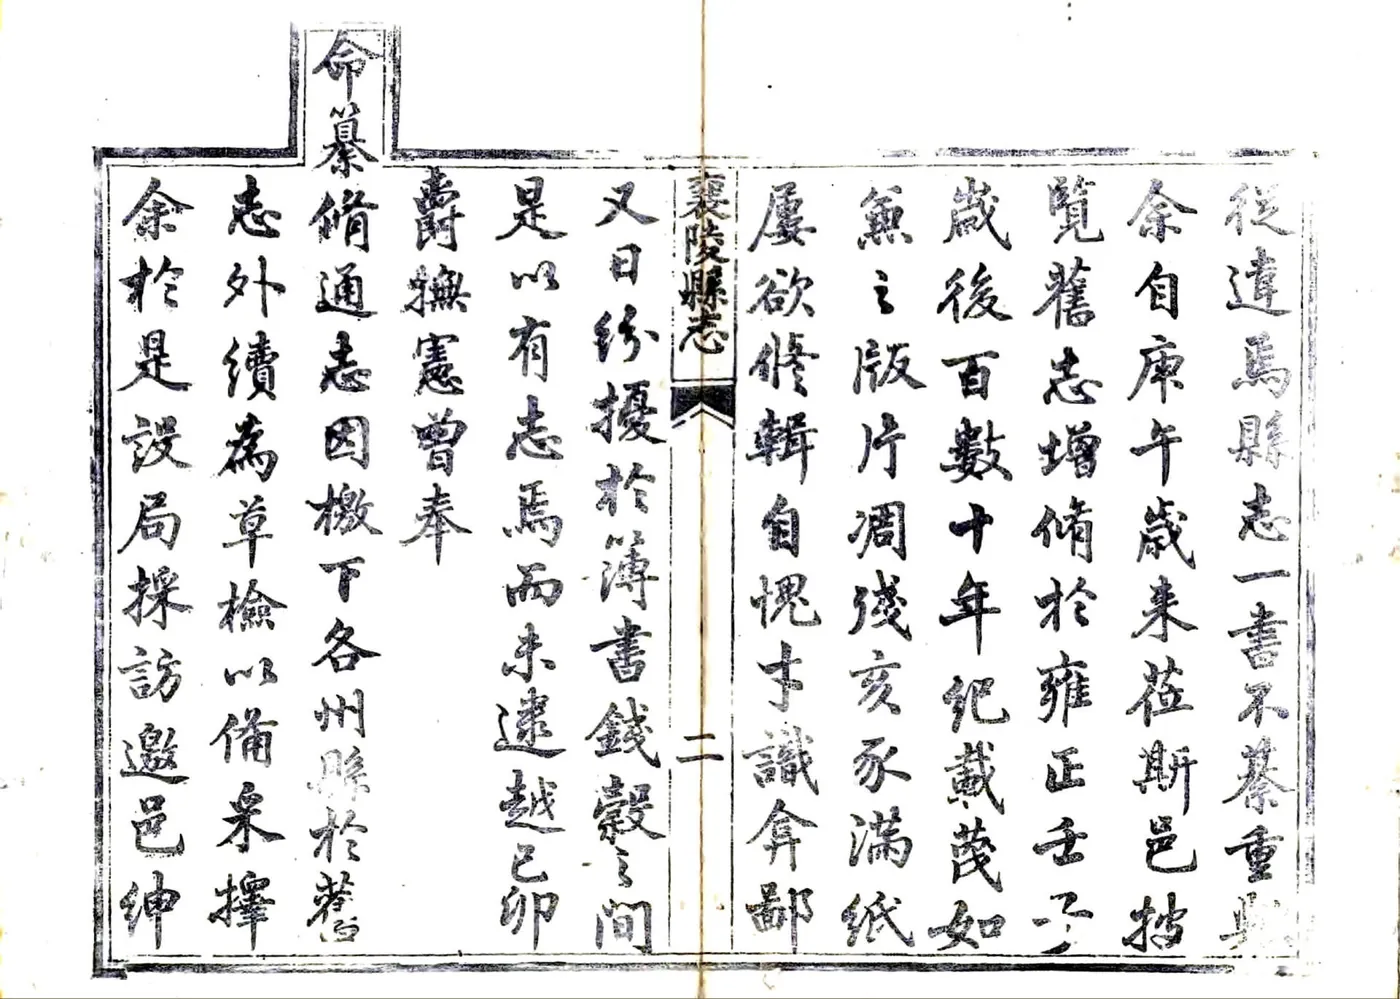 從違焉縣志一書不綦重歟
余自庚午歲来莅斯邑披
覽舊志增脩於雍正壬子
歲後百數十年紀載蔑如
兼之版片凋殘亥豕滿紙
屢欲修輯自愧才識弇鄙
襄陵縣志 二
又日紛擾於簿書錢穀之間
是以有志焉而未逮越己卯
爵撫憲曾奉
命纂脩通志因檄下各州縣於舊
志外續為草檢以備采擇
余於是設局採訪邀邑紳